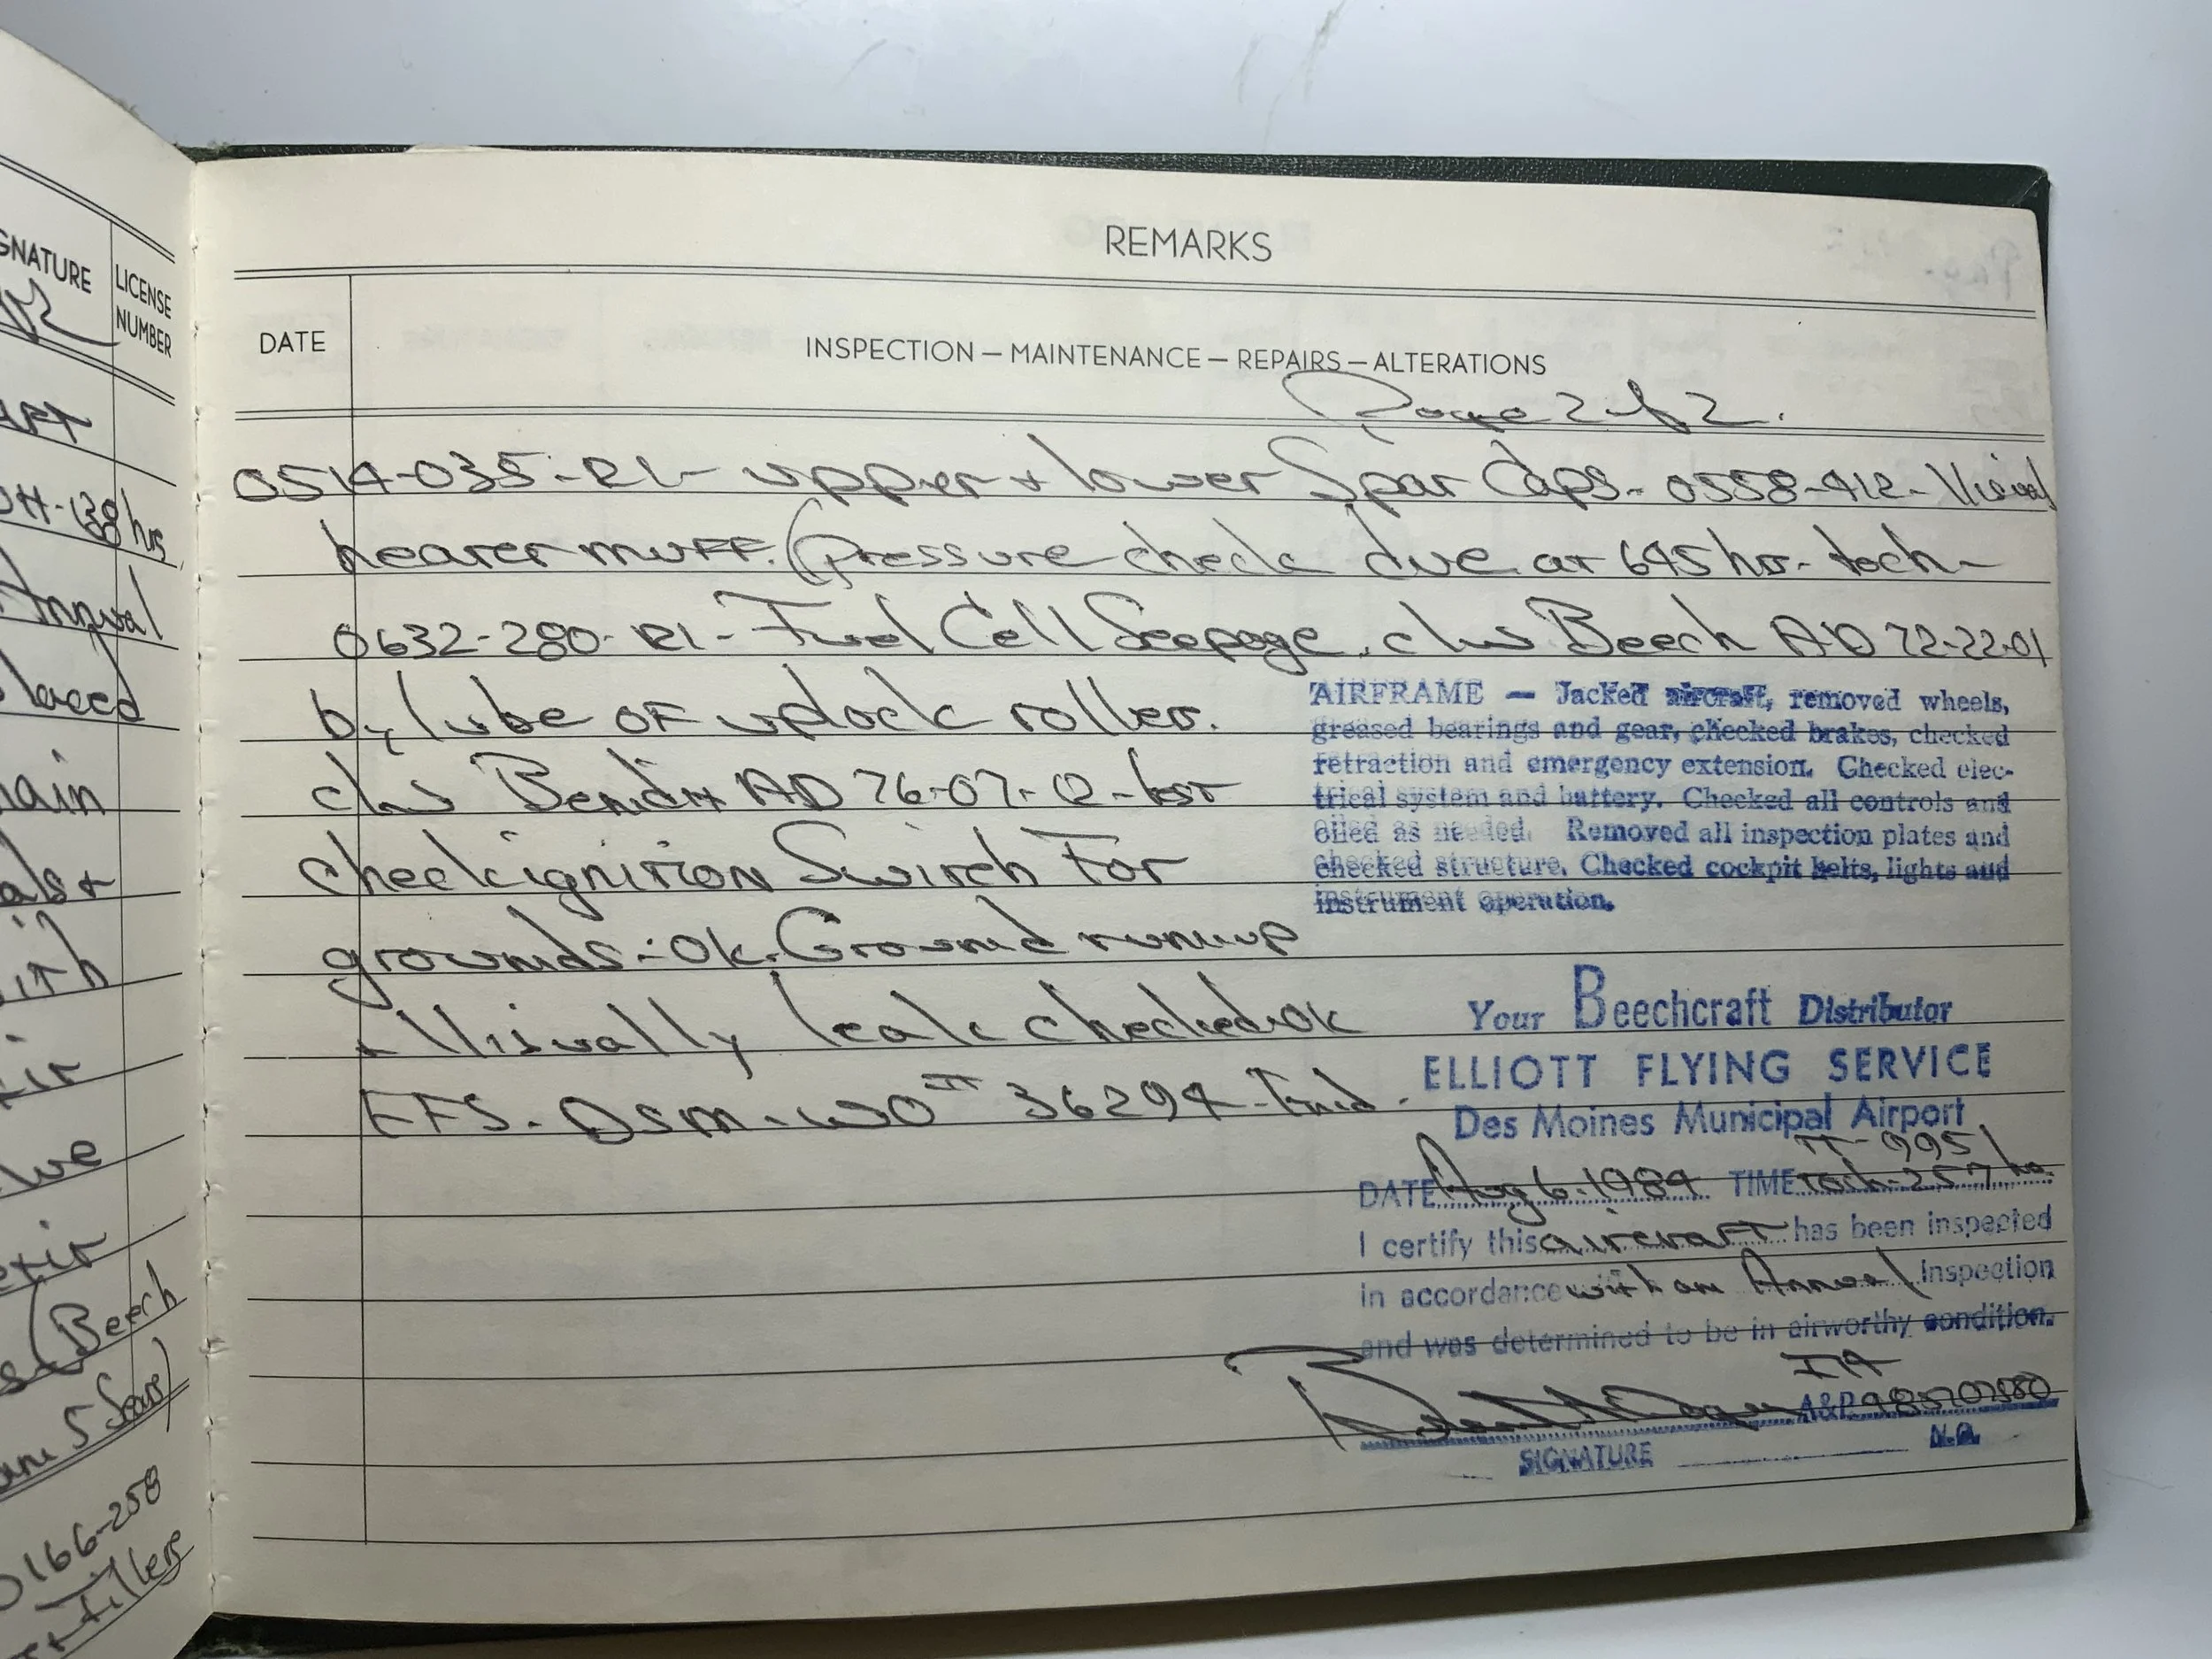 GNATURE
LICENSE
NUMBER
Annual
laced
ith
(Beech
0166-258
REMARKS
DATE
INSPECTION — MAINTENANCE — REPAIRS — ALTERATIONS
Page 2 of 2.
0514-035-R1- upper + lower Spar Caps. 0558-412-Visual
heater muff. (Pressure check due at 645 hrs. tach-
0632-280-R1-Fuel Cell Seepage. c/w Beech AD 72-22-01
by lube of uplock roller.
c/w Bendix AD 76-07-12-
check ignition Switch For
grounds-Ok. Ground runup
+ Visually leak checked ok
EFS. DSM. WO# 36294-
AIRFRAME — Jacked aircraft, removed wheels,
greased bearings and gear, checked brakes, checked
retraction and emergency extension. Checked elec-
trical system and battery. Checked all controls and
oiled as needed. Removed all inspection plates and
checked structure. Checked cockpit belts, lights and
instrument operation.
Your Beechcraft Distributor
ELLIOTT FLYING SERVICE
Des Moines Municipal Airport
TT-995
DATE Aug 6. 1984 TIME Tach-257 hrs.
I certify this aircraft has been inspected
in accordance with an Annual Inspection
and was determined to be in airworthy condition.
IA
A&P
SIGNATURE NO.